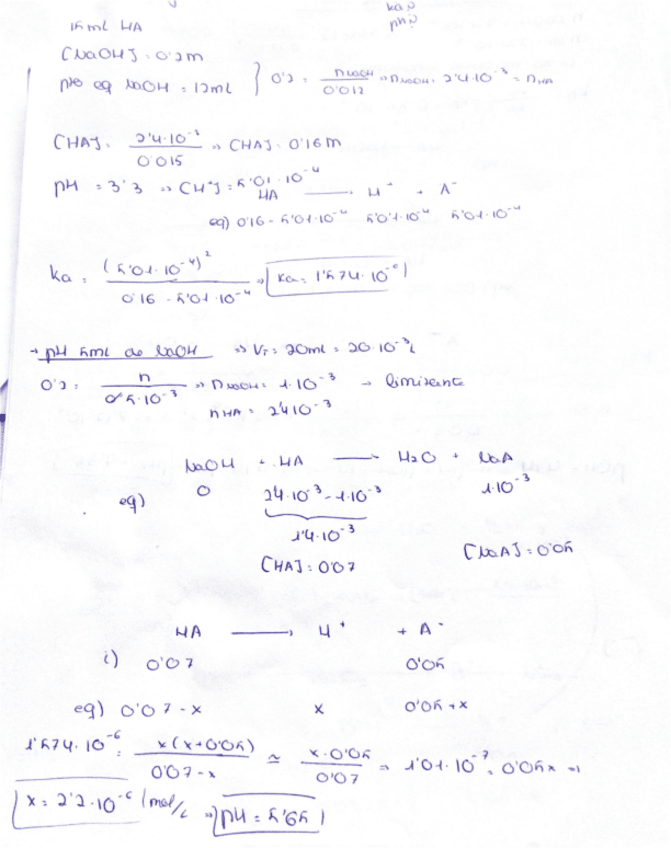 ka?
ph?
15 ml HA
[NaOH] = 0'2M
pto eq NaOH = 12mL } 0'2 = nNaOH / 0'012 ⇒ nNaOH = 2'4·10⁻³ = nHA
[HA] = 2'4·10⁻³ / 0'015 ⇒ [HA] = 0'16M
pH = 3'3 ⇒ [H⁺] = 5'01·10⁻⁴
HA → H⁺ + A⁻
eq) 0'16 - 5'01·10⁻⁴ 5'01·10⁻⁴ 5'01·10⁻⁴
ka = (5'01·10⁻⁴)² / 0'16 - 5'01·10⁻⁴ ⇒ ka = 1'574·10⁻⁶
→ pH 5ml de NaOH ⇒ VT = 20ml = 20·10⁻³L
0'2 = n / 5·10⁻³ ⇒ nNaOH = 1·10⁻³ → limitante
nHA = 2'4·10⁻³
NaOH + HA → H2O + NaA
eq) 0 2'4·10⁻³ - 1·10⁻³ 1·10⁻³
1'4·10⁻³
[HA] = 0'07 [NaA] = 0'05
HA → H⁺ + A⁻
i) 0'07 0'05
eq) 0'07-x x 0'05+x
1'574·10⁻⁶ = x(x+0'05) / 0'07-x ≃ x·0'05 / 0'07 = 1'01·10⁻⁷ = 0'05x ⇒
x = 2'2·10⁻⁶ mol/L ⇒ pH = 5'65